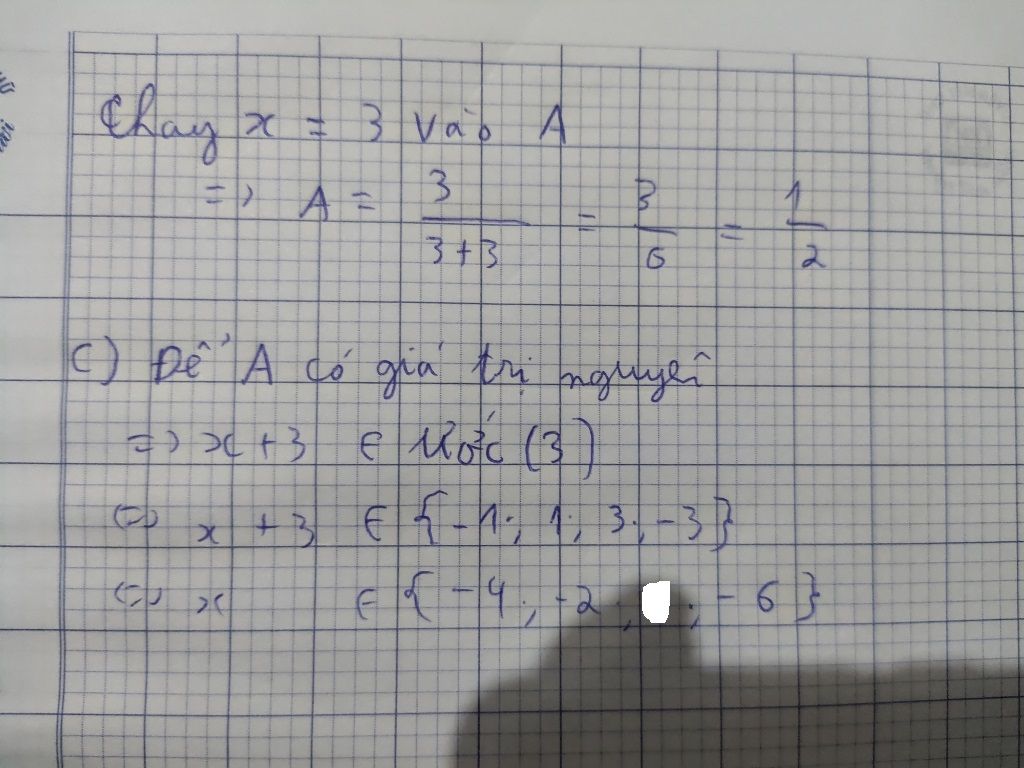 Thay x = 3 vào A
=> A = 3/(3+3) = 3/6 = 1/2
c) Để A có giá trị nguyên
=> x + 3 ∈ Ước (3)
<=> x + 3 ∈ {-1; 1; 3; -3}
<=> x ∈ {-4; -2; ; -6}